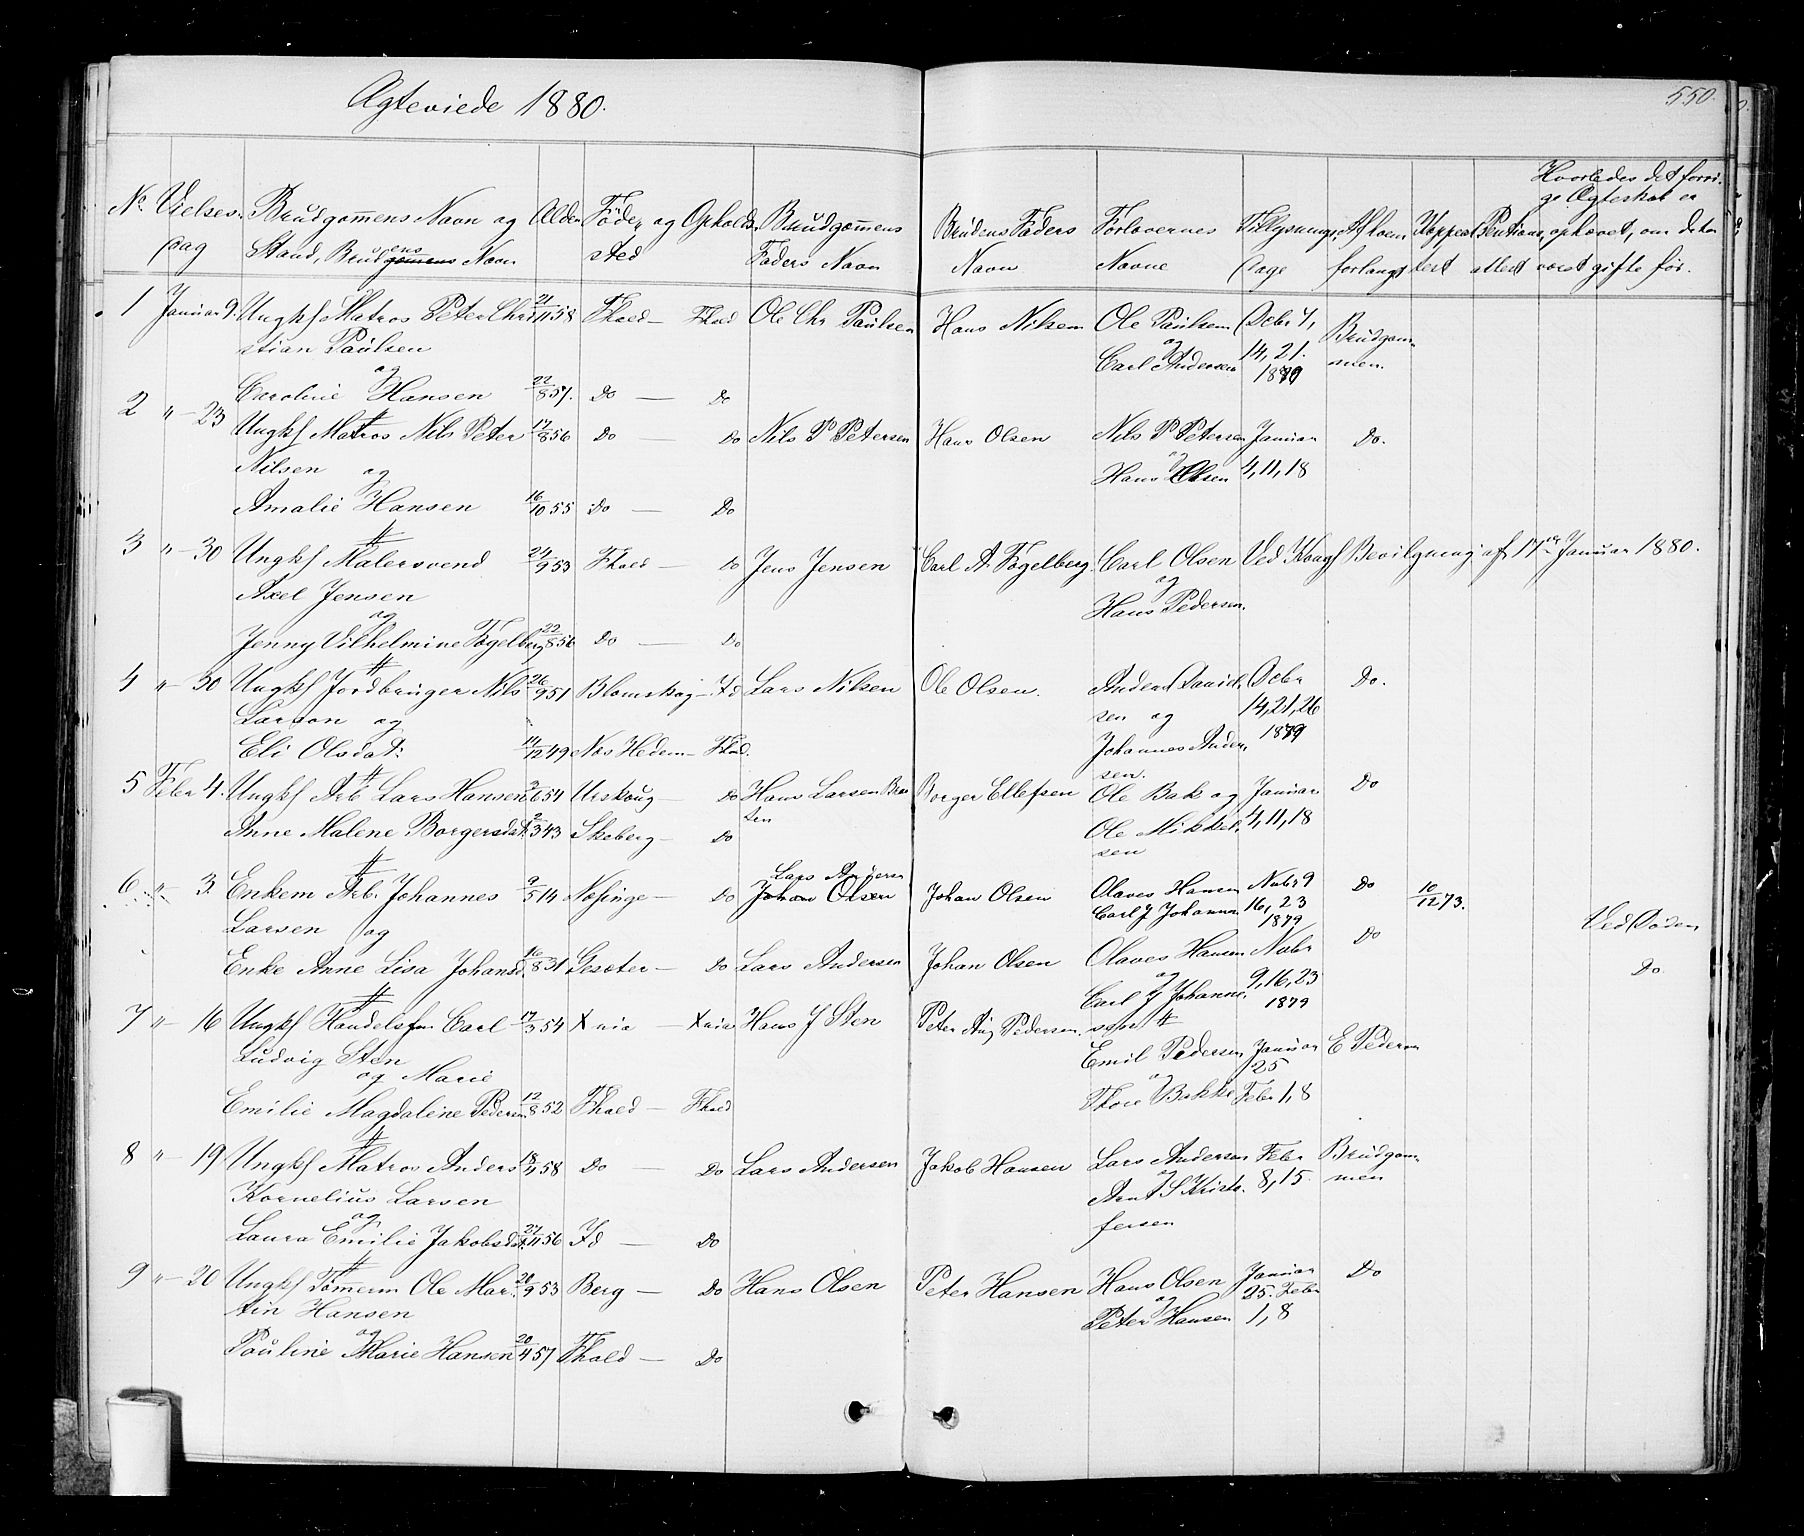 Ægteviede 1880.
550.
No Vielses dag | Brudgommens Navn og Stand, Brudens Navn | Alder | Føde og Opholds sted | Brudgommens Faders Navn | Brudens Faders Navn | Forlovernes Navne | Tillysnings Dage | Af hvem forlangt | Koppeat test | Hvorledes det forri- ge Ægteskab er ophævet, om de før været gifte før.
1 Januar 9. Ungkf Matros Peter Chri 21/11 58 Fhald — Fhald Ole Chr Paulsen Hans Nilsen Ole Paulsen Debr 7,
stian Paulsen og Carl Andersen 14, 21. 1879 Brudgom- men.
og
Caroline Hansen 22/8 57. Do — Do
2 " — 23 Ungkf Matros Nils Peter 17/8 56 Do — Do Nils P Petersen Hans Olsen Nils P Petersen Januar Do.
Nilsen og Hans Olsen 4, 11, 18
Amalie Hansen 16/10 55 Do — Do
3 " — 30 Ungkf Malersvend 24/9 53 Fhald — Do Jens Jensen Carl A. Fogelberg. Carl Olsen Ved Kongl Bevilgning af 17 Januar 1880.
Axel Jensen og Hans Pedersen.
og
Jenny Vilhelmine Fogelberg 22/8 56 Do — Do
4 " — 30 Ungkf Jordbruger Nils 26/9 51 Blomskog — Id Lars Nilsen Ole Olsen. Anders Daniel- Debr Do.
Larson og sen og 14, 21, 26
Eli Olsdat: 14/12 49 Nes Hedem — Fhald. Johannes Ander- sen. 1879
5 Febr 4. Ungkf Arb Lars Hansen 54 Urskoug — Do Hans Larsen Bra ten Borger Ellefsen Ole Bak og Januar Do
Anne Malene Borgersdat. 2/3 43 Skeberg — Do Ole Mikkel- sen 4, 11, 18
6 " — 3. Enkem Arb. Johannes 9/5 14 — Do Lars Anders Johan Olsen Johan Olsen Olaves Hansen Nobr 9 Do 10/12 73.
Larsen og Carl J Johanne. 16, 23 1879 Ved Døden
Enke Anne Lisa Johansd. 16/8 31 — Do Lars Andersen Johan Olsen Olaves Hansen Nobr Do Do.
og Carl J Johanne. 9, 16, 23 1879
7 " — 16 Ungkf Handelsfm Carl 17/3 54 Xnia — Xnia Hans J Sten Peter Aug Pedersen. sen
Ludvig Sten Emil Pedersen Januar 25 E Pedersen
og Marie
Emilie Magdaline Pedersen 12/8 52 Fhald — Fhald og Thore Bakke Febr 1, 8
8 " — 19 Ungkf Matros Anders 18/11 58 Do — Do Lars Andersen Jakob Hansen Lars Andersen Febr Brudgom-
Kornelius Larsen og Arnt S Kristo- fersen 8, 15. men
og
Laura Emilie Jakobsdat. 27/11 56 Id — Do
9 " — 20 Ungkf Tømmerm Ole Mar- 20/9 53 Berg — Do Hans Olsen Peter Hansen Hans Olsen Januar 25. Febr Do
tin Hansen og Peter Hansen 1, 8
og
Pauline Marie Hansen 20/4 57 Fhald — Do